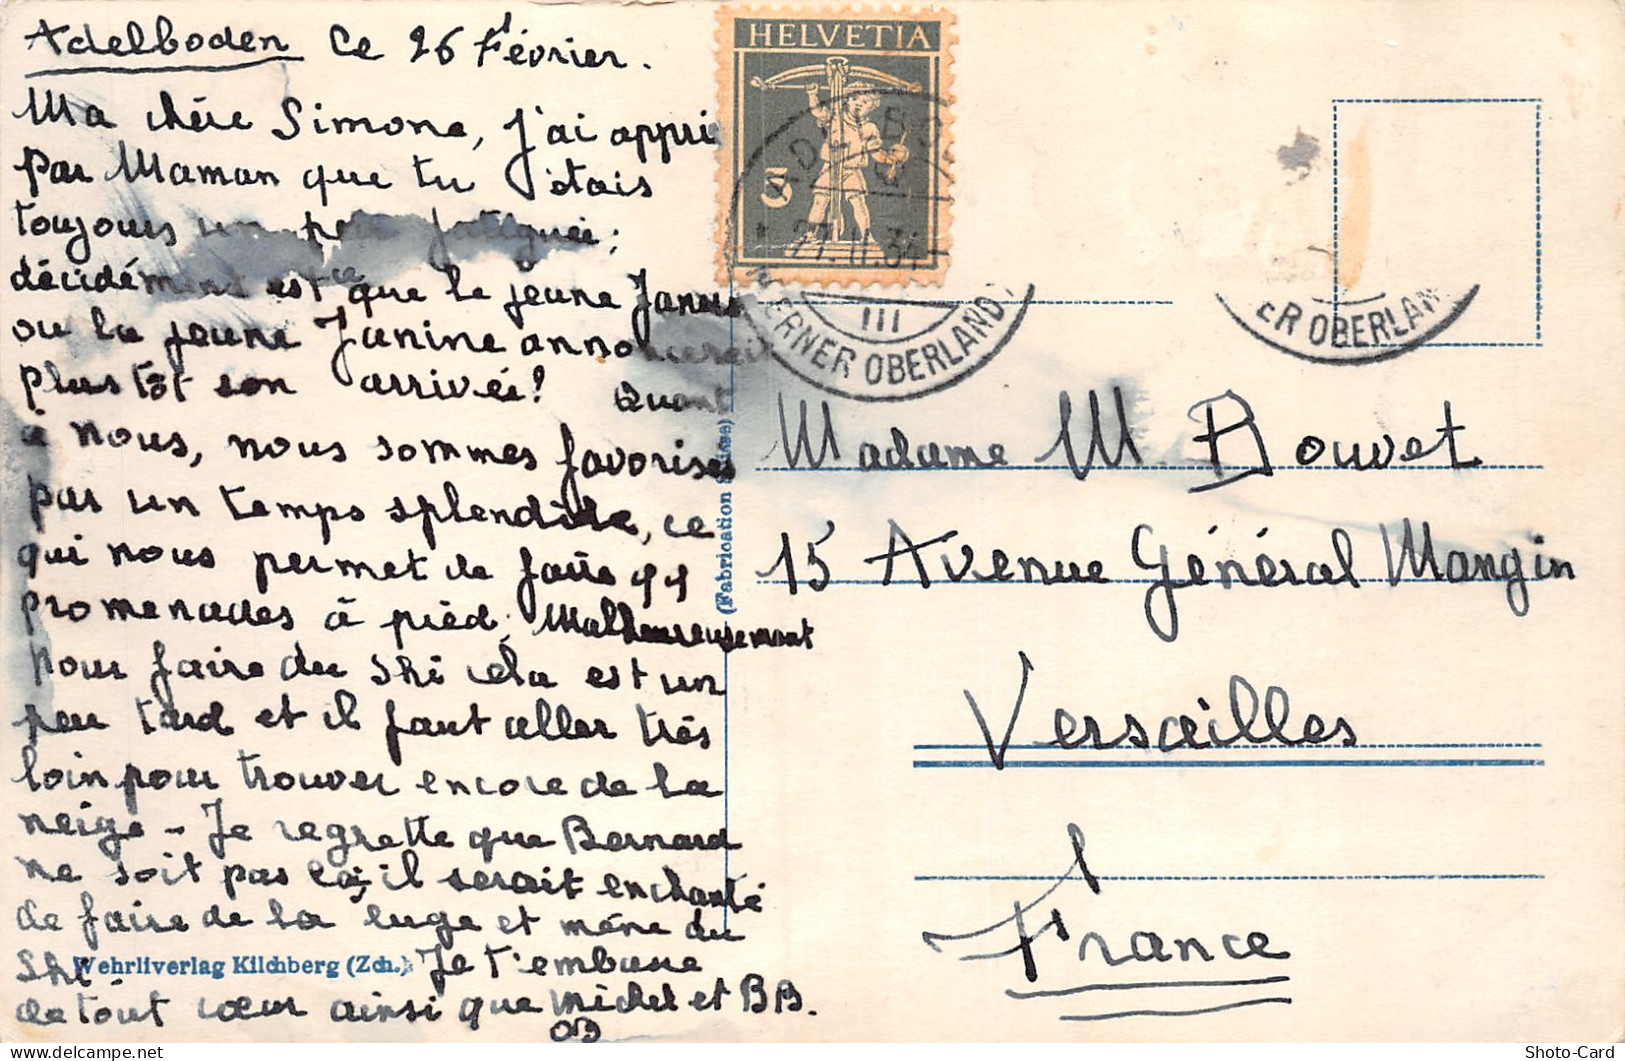 Adelboden le 26 Février.
Ma chère Simone, j'ai appris
par Maman que tu étais
toujours un peu fatiguée;
décidément est ce que le jeune
ou la jeune Janine annoncerait
plus tôt son arrivée? Quant
à nous, nous sommes favorisés
par un temps splendide, ce
qui nous permet de faire qq
promenades à pied. Malheureusement
pour faire du ski cela est un
peu tard et il faut aller très
loin pour trouver encore de la
neige - Je regrette que Bernard
ne soit pas là; il serait enchanté
de faire de la luge et même du
ski Je t'embrasse
de tout cœur ainsi que Michel et BB.
OB
Wehrliverlag Kilchberg (Zch.)
(Fabrication Suisse)
HELVETIA
5
ADELBODEN
27.II.34
III
BERNER OBERLAND
ER OBERLAN
Madame M. Bouvet
15 Avenue Général Mangin
Versailles
France
Shoto-Card